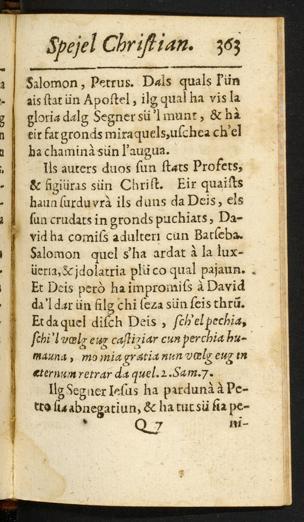 Spejel Christian. 363
Salomon, Petrus. Dals quals l'ün
ais stat ün Apostel, ilg qual ha vis la
gloria dalg Segner sü 'l munt, & hà
eir fat gronds miraquels, uschea ch'el
ha chaminà sün l'augua.
Ils auters duos sun stats Profets,
& sigiüras sün Christ. Eir quaists
haun surduvrà ils duns da Deis, els
sun crudats in gronds puchiats, Da-
vid ha comiss adulteri cun Batseba.
Salomon quel s'ha ardat à la lux-
üeria, & jdolatria plü co qual pajaun.
Et Deis però ha impromiss à David
da'l dar ün filg chi seza sün seis thrü.
Et da quel disch Deis, sch'el pechia,
schi'l vœlg eug castigiar cun perchia hu-
mauna, mo mia gratia nun vœlg eug in
æternum retrar da quel. 2. Sam. 7.
Ilg Segner Iesus ha pardunà à Pe-
tro sia abnegatiun, & ha tut sü sia pe-
Q 7 ni-